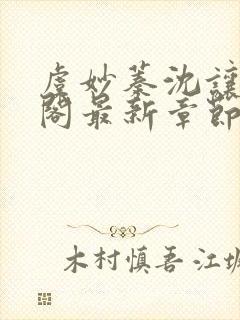 虞妙蓁沈讓
閣最新章節
木村慎吾 江城